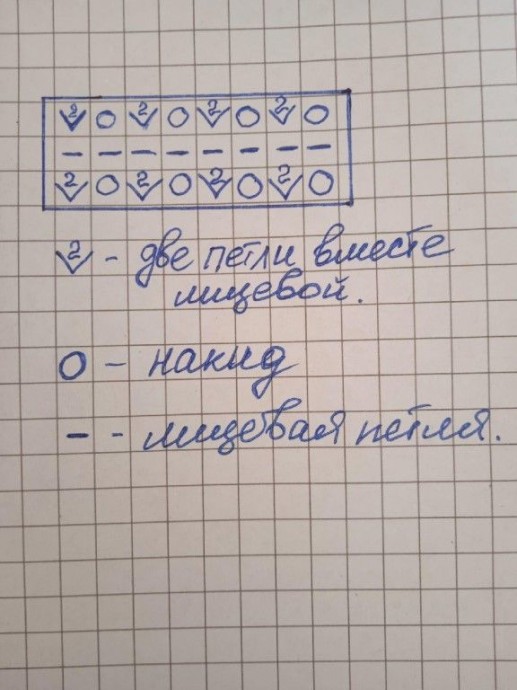 2 О 2 О 2 О 2 О
— — — — — — — —
2 О 2 О 2 О 2 О
2 - две петли вместе
лицевой.
О - накид
— - лицевая петля.